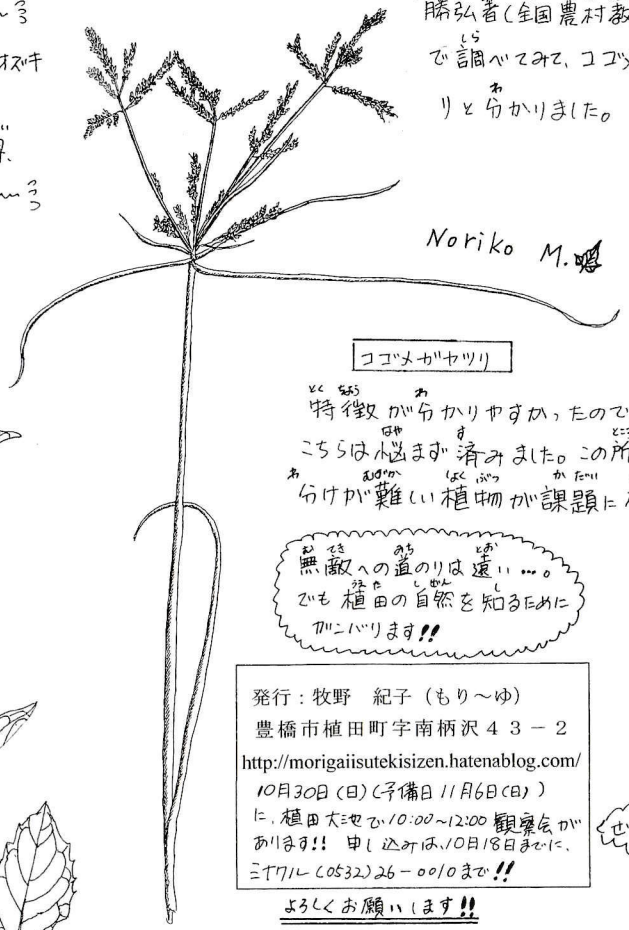 オズキ
勝弘著(全国農村教
で調べてみて、コゴメ
リと分かりました。
Noriko M.
コゴメガヤツリ
特徴が分かりやすかったので
こちらは悩まず済みました。この所
分けが難しい植物が課題に
無敵への道のりは遠い…。
でも植田の自然を知るために
ガンバリます!!
発行：牧野　紀子（もり～ゆ）
豊橋市植田町字南柄沢４３－２
http://morigaiisutekisizen.hatenablog.com/
10月30日(日)(予備日11月6日(日))
に、植田大池で10:00~12:00 観察会が
あります!! 申し込みは、10月18日までに、
ミナクル(0532)26-0010まで!!
よろしくお願いします!!